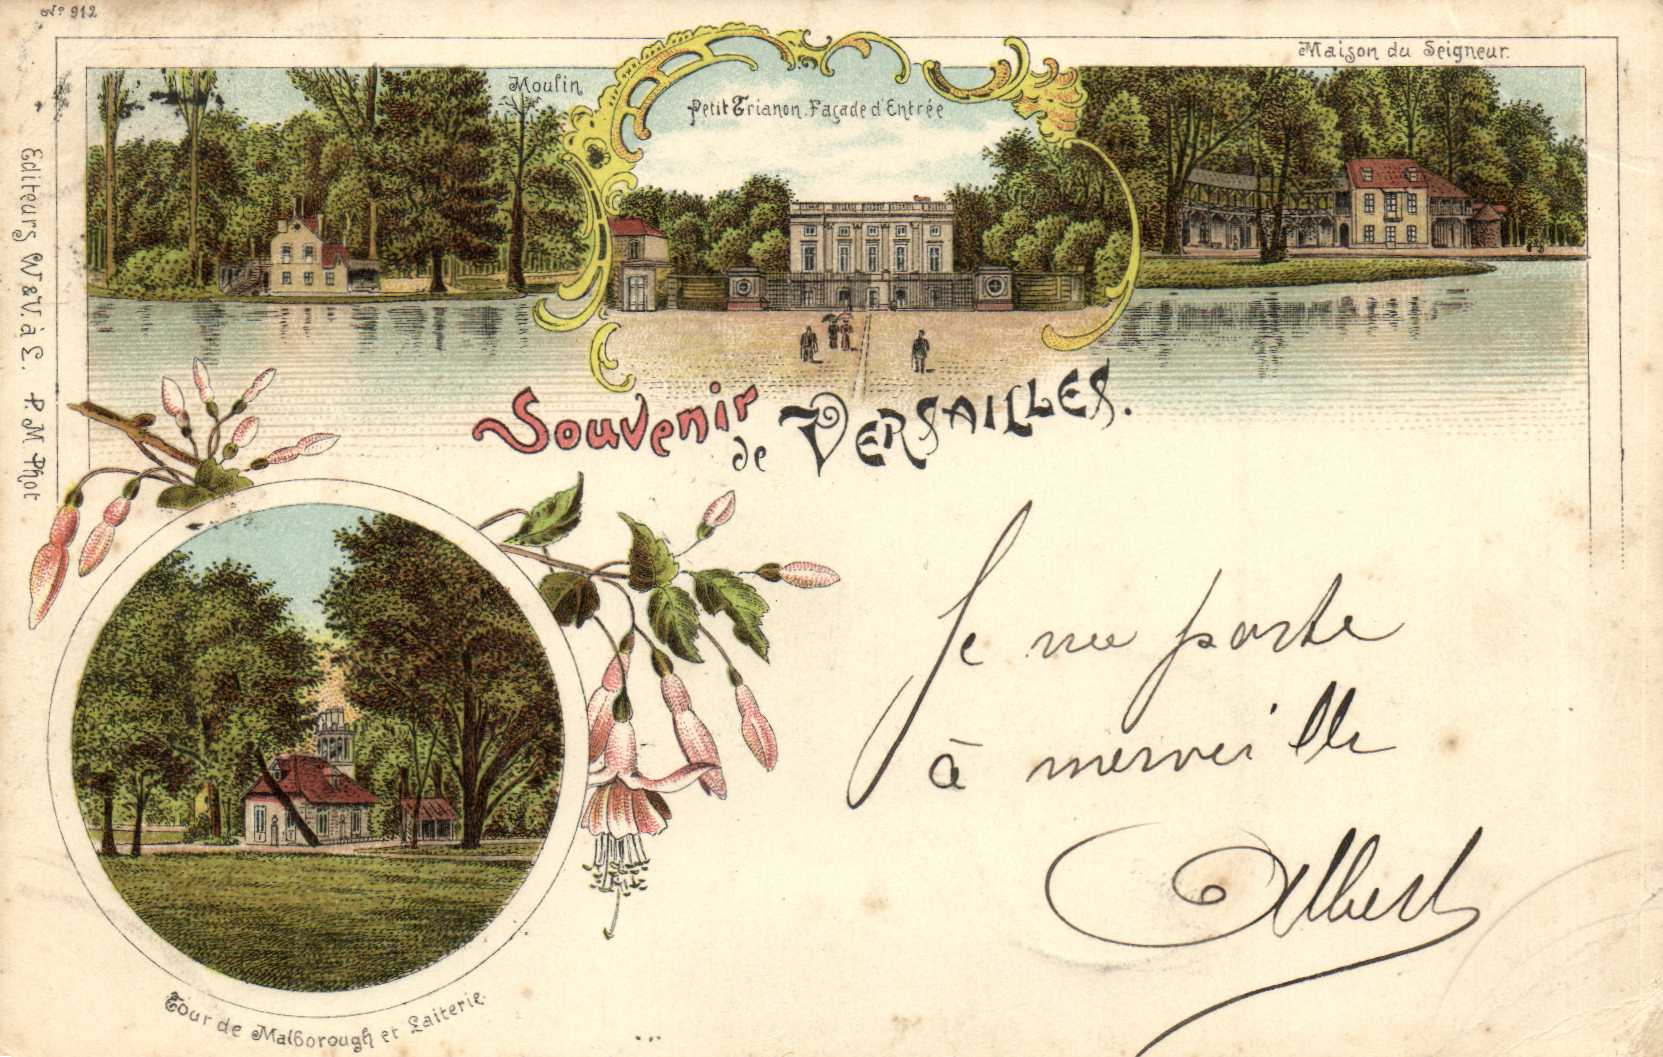 No 912
Moulin
Petit Trianon. Façade d'Entrée
Maison du Seigneur.
Editeurs W & V. à L. P. M. Phot
Souvenir
de VERSAILLES.
Je me porte
à merveille
Albert
Tour de Malborough et Laiterie.